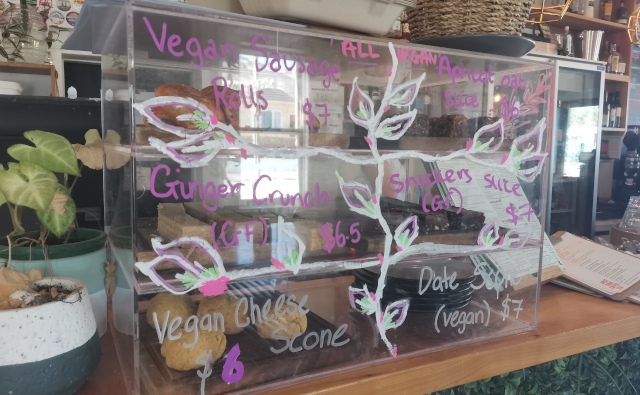 ALL VEGAN
Vegan Sausage
Rolls $7
Apricot oat
slice $6
Ginger Crunch
(GF) $6.5
Snickers slice
(GF)
$7
Vegan Cheese
Scone
$6
Date Scone
(vegan) $7